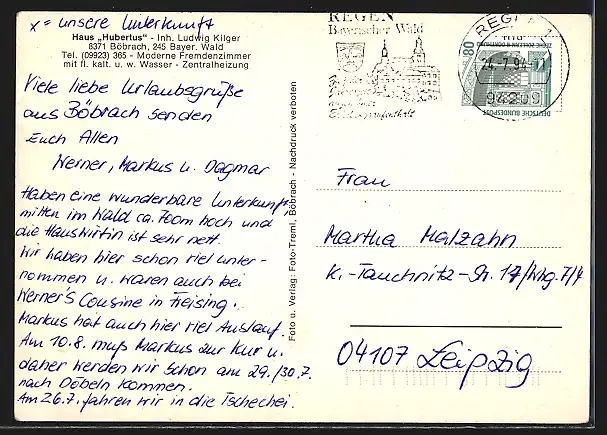 x = unsere Unterkunft
Haus „Hubertus" - Inh. Ludwig Kilger
8371 Böbrach, 245 Bayer. Wald
Tel. (09923) 365 - Moderne Fremdenzimmer
mit fl. kalt. u. w. Wasser - Zentralheizung
Viele liebe Urlaubsgrüße
aus Böbrach senden
Euch Allen
Werner, Markus u. Dagmar
Haben eine wunderbare Unterkunft,
mitten im Wald ca. 700m hoch und
die Hauswirtin ist sehr nett.
Wir haben hier schon viel unter-
nommen u. waren auch bei
Werner's Cousine in Freising.
Markus hat auch hier viel Auslauf.
Am 10.8. muß Markus zur Kur u.
daher werden wir schon am 29./30.7.
nach Döbeln kommen.
Am 26.7. fahren wir in die Tschechei.
Foto u. Verlag: Foto-Treml, Böbrach - Nachdruck verboten
REGEN
Bayerischer Wald
REGEN 1
24.-7.94-17
94209
80
DEUTSCHE BUNDESPOST
ZECHE ZOLLERN II DORTMUND
Frau
Martha Malzahn
K.-Tauchnitz-Str. 17/Whg. 7/4
04107 Leipzig